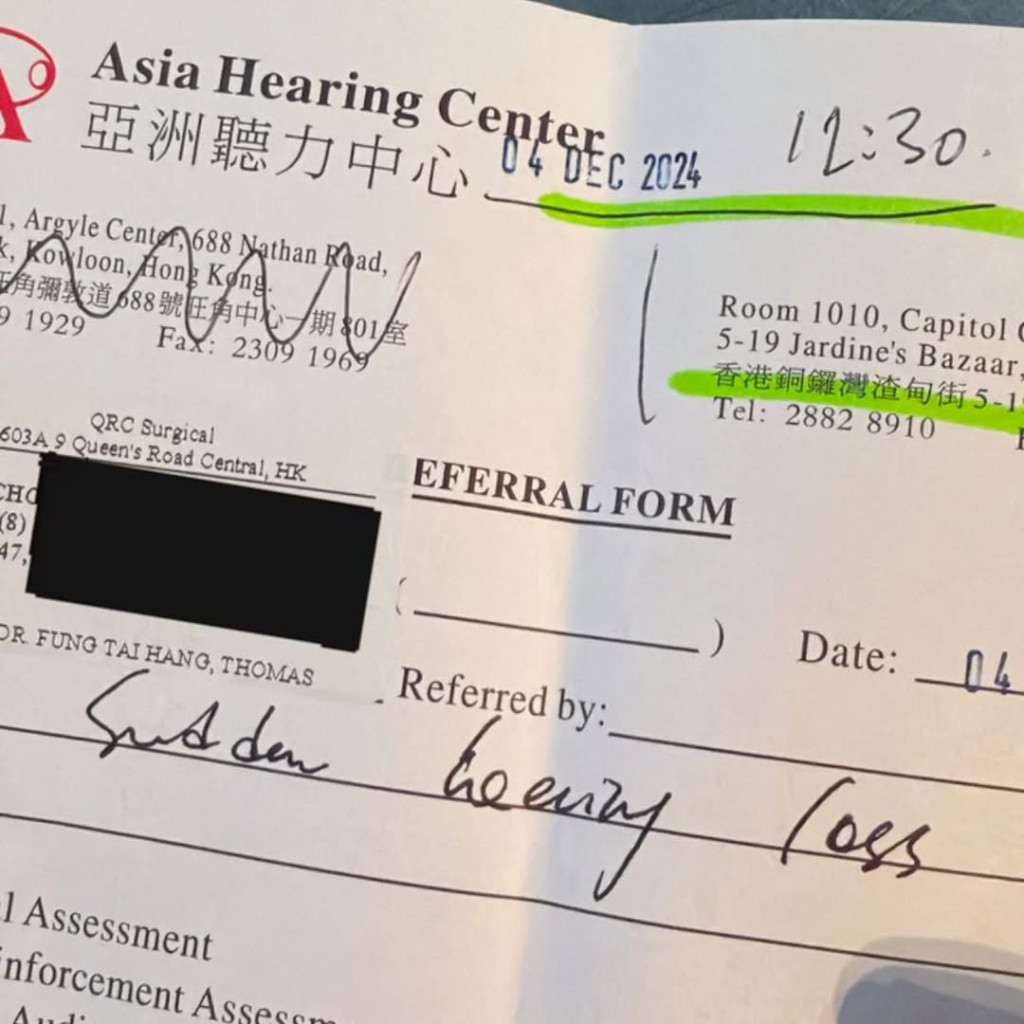 Asia Hearing Center
亞洲聽力中心
04 DEC 2024
12:30.
Argyle Center, 688 Nathan Road,
Kowloon, Hong Kong.
角彌敦道688號旺角中心一期801室
9 1929 Fax: 2309 1969
Room 1010, Capitol
5-19 Jardine's Bazaar,
香港銅鑼灣渣甸街5-1
Tel: 2882 8910
QRC Surgical
603A 9 Queen's Road Central, HK
EFERRAL FORM
CHO
(8)
47,
( )
Date: 04
DR. FUNG TAI HANG, THOMAS
Referred by:
Sudden hearing loss
l Assessment
nforcement Assessm